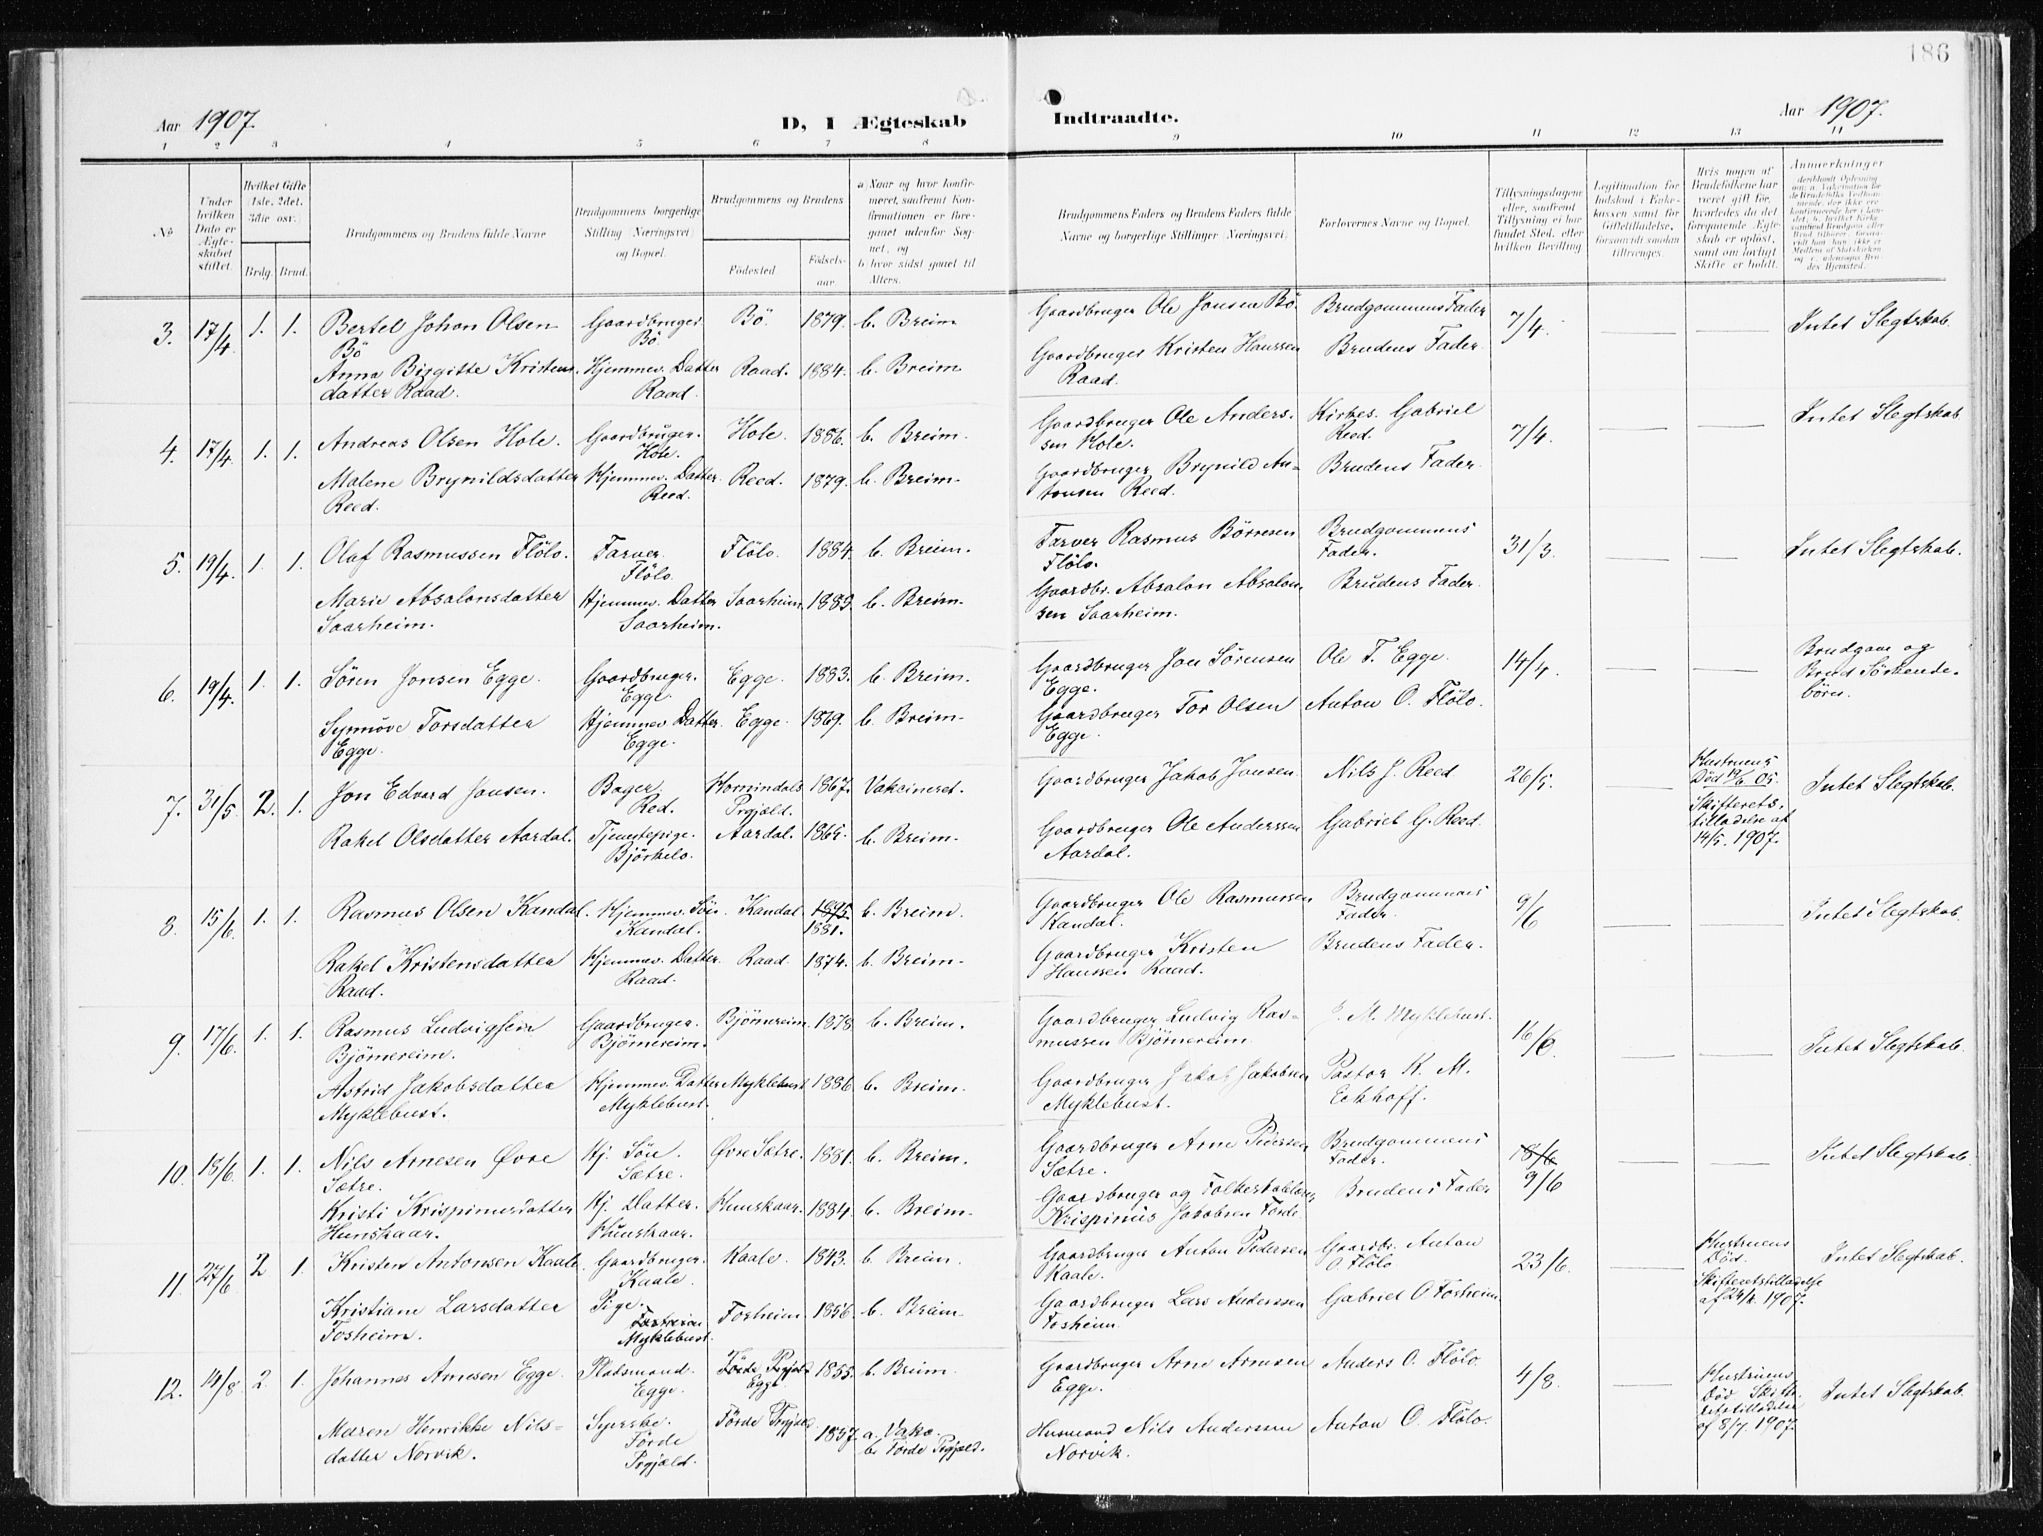 186
Aar 1907.
D, I Ægteskab
Indtraadte.
Aar 1907.
1 2 3 4 5 6 7 8 9 10 11 12 13 14
No
Under hvilken Dato er Ægteskabet stiftet.
Hvilket Gifte 1ste, 2det, 3die osv.
Brdg. Brud.
Brudgommens og Brudens fulde Navne
Brudgommens borgerlige Stilling (Næringsvei) og Bopæl.
Brudgommens og Brudens
Födested
Födselsaar.
a) Naar og hvor konfirmeret, saafremt Konfirmationen er foregaaet udenfor Sognet, og
b) hvor sidst gaaet til Alters.
Brudgommens Faders og Brudens Faders fulde Navne og borgerlige Stillinger (Næringsvei).
Forlovernes Navne og Bopæl.
Tillysningsdagene eller, saafremt Tillysning ei har fundet Sted, efter hvilken Bevilling
Legitimation for Indskud i Enkekassen samt for Giftetilladelse, forsaavidt saadan tiltrænges.
Hvis nogen af Brudefolkene har været gift før, hvorledes da det foregaaende Ægteskab er opløst, samt om lovligt Skifte er holdt.
Anmærkninger
3. 17/4 1. 1. Bertel Johan Olsen Bö Gaardbruger. Bö. Bö. 1879. b. Breim Gaardbruger Ole Jonsen Bö. Brudgommens Fader 7/4. Intet Slegtskab.
Anna Birgitte Kristensdatter Raad. Hjemmev. Datter Raad. Raad. 1884. b. Breim Gaardbruger Kristen Hanssen Raad. Brudens Fader.
4. 17/4 1. 1. Andreas Olsen Hole. Gaardbruger. Hole. Hole. 1886. b. Breim. Gaardbruger Ole Anderssen Hole. Kirkes. Gabriel Reed. 7/4. Intet Slegtskab
Malene Brynildsdatter Reed. Hjemmev. Datter. Reed. Reed. 1879. b. Breim. Gaardbruger Brynild Antonsen Reed. Brudens Fader.
5. 19/4. 1. 1. Olaf Rasmussen Flölo. Farver. Flölo. Flölo. 1884. b. Breim. Farver Rasmus Börresen Flölo. Brudgommens Fader. 31/3. Intet Slegtskab.
Marie Absalonsdatter Saarheim. Hjemmev. Datter Saarheim. Saarheim. 1883. b. Breim. Gaardbr. Absalon Absalonsen Saarheim. Brudens Fader.
6. 19/4. 1. 1. Sören Jonsen Egge. Gaardbruger. Egge. Egge. 1883. b. Breim. Gaardbruger Jon Sörensen Egge. Ole T. Egge. 14/4. Brudgom og Brud Söskendebörn.
Synnöve Torsdatter Egge. Hjemmev Datter. Egge. Egge. 1869. b. Breim. Gaardbruger Tor Olsen Egge. Anton O. Flölo.
7. 31/5 2. 1. Jon Edvard Jonsen. Bager. Red. Hornindals Prgjæld. 1867. Vakcineret. Gaardbruger Jakob Jonsen. Nils J. Reed 26/5. Hustruens Död 19/6 05. Skifterets. tilladelse af 14/5. 1907. Intet Slegtskab.
Rakel Olsdatter Aardal. Tjenestepige. Björkelo. Aardal. 1865. b. Breim. Gaardbruger Ole Anderssen Aardal. Gabriel G. Reed.
8. 15/6. 1. 1. Rasmus Olsen Kandal. Hjemmev. Sön Kandal. Kandal. 1875. 1881. b. Breim. Gaardbruger Ole Rasmussen Kandal. Brudgommens Fader. 9/6 Intet Slegtskab.
Rakel Kristensdatter Raad. Hjemmev. Datter. Raad. Raad. 1874. b. Breim. Gaardbruger Kristen Hanssen Raad. Brudens Fader.
9. 17/6. 1. 1. Rasmus Ludvigsen Björnereim. Gaardbruger. Björnereim. Björnereim. 1878. b. Breim. Gaardbruger Ludvig Rasmussen Björnereim. M. Myklebust. 16/6. Intet Slegtskab.
Astrid Jakobsdatter Myklebust. Hjemmev. Datter Myklebust. Myklebust 1886 b. Breim. Gaardbruger Jakob Jakobsen Myklebust. Pastor K. M. Eckhoff.
10. 18/6. 1. 1. Nils Arnesen Øvre Sætre. Hj. Sön. Sætre. Øvre Sætre. 1881. b. Breim. Gaardbruger Arne Pedersen Sætre. Brudgommens Fader. 18/6 9/6 Intet Slegtskab.
Kristi Krispinusdatter Hunskaar. Hj. Datter. Hunskaar. Hunskaar. 1884. b. Breim. Gaardbruger og Krispinus Jakobsen Förde. Brudens Fader
11. 27/6 2 1. Kristen Antonsen Kaale Gaardbruger. Kaale. Kaale. 1843. b. Breim. Gaardbruger Anton Pedersen Kaale. Gaardbr. Anton O Flölo 23/6. Hustruens Död. Skifteretstilladelse af 24/6. 1907. Intet Slegtskab.
Kristiane Larsdatter Fosheim. Pige. Myklebust. Fosheim. 1856. b. Breim Gaardbruger Lars Anderssen Fosheim. Gabriel O Fosheim.
12. 14/8 2. 1. Johannes Arnesen Egge. Pladsmand. Egge. Förde Prgjæld Egge. 1855. b. Breim. Gaardbruger Arne Arnesen Egge. Anders O. Flölo 4/8. Hustruens Död Skifteretstilladelse af 8/7. 1907. Intet Slegtskab.
Maren Henrikke Nilsdatter Norvik. Syerske. Förde Prgjæld. Förde Prgjæld 1857. a. Vakc. b. Förde Prgjæld. Husmand Nils Anderssen Norvik. Anton O. Flölo.